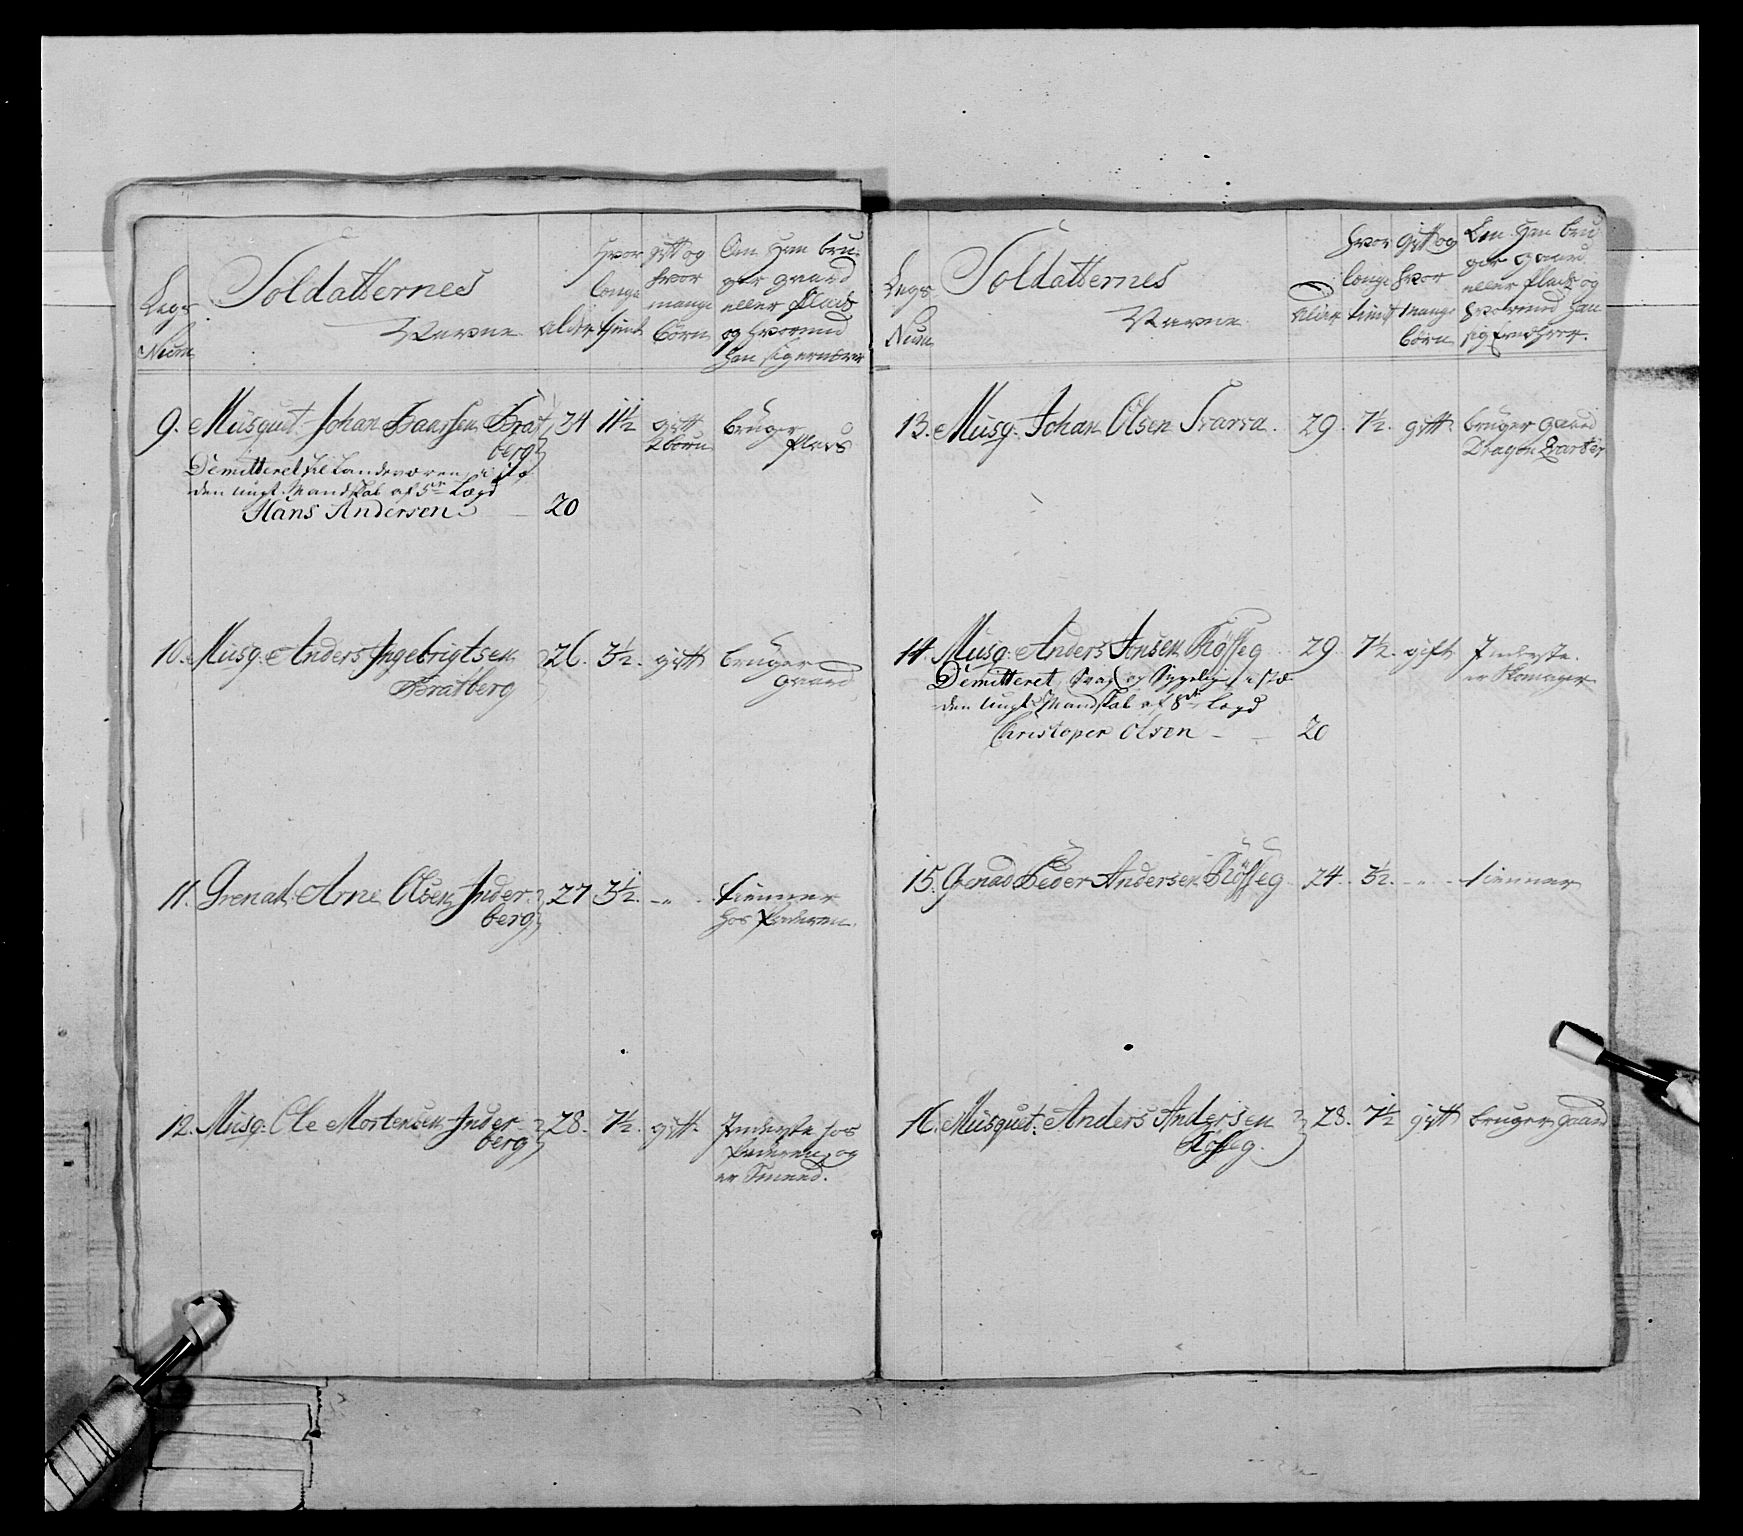 Legs
Num
Soldatternes
Navne
alder
hvor
længe
tient
gift og
hvor
mange
børn
Om Han bru-
ger gaard
eller Plads
og hvormed
Han sig ernærer
9. Musqut. Johan Brat
berg
34 11½ gift
2 børn
bruger
Plads
Demitteret til Landeværen, i stæ-
den ungt Mandskab af 5te Lægd
Hans Andersen 20
10. Musq. Anders Ingebrigtsen
Bratberg
26. 3½. gift bruger
gaard
11. Grenad. Arne Olsen Inder-
berg
27 3½. - " - tienner
hos Faderen.
12. Musq. Ole Mortensen Inder-
berg
28. 7½. gift. Inderste hos
Faderen, og
er Smed.
Legs
Num
Soldatternes
Navne
alder
hvor
længe
tient
gift og
hvor
mange
børn
Om Han bru-
ger gaard
eller Plads og
hvormed Han
sig Ernærer.
13. Musq. Johan Olsen Svarva. 29. 7½. gift. bruger gaard
Dragon Qvarter
14. Musq. Anders Ansen Røsseg 29. 7½. gift Inderste.
er Skomager
Demitteret, Svag og Sygelig, i stæ-
den ungt Mandskab af 8de Lægd
Christoper Olsen 20
15. Grenad Peder Andersen Røsseg 24. 3½. - " - tienner
16. Musquet. Anders Andersen
Røsseg.
28. 7½ gift bruger gaard